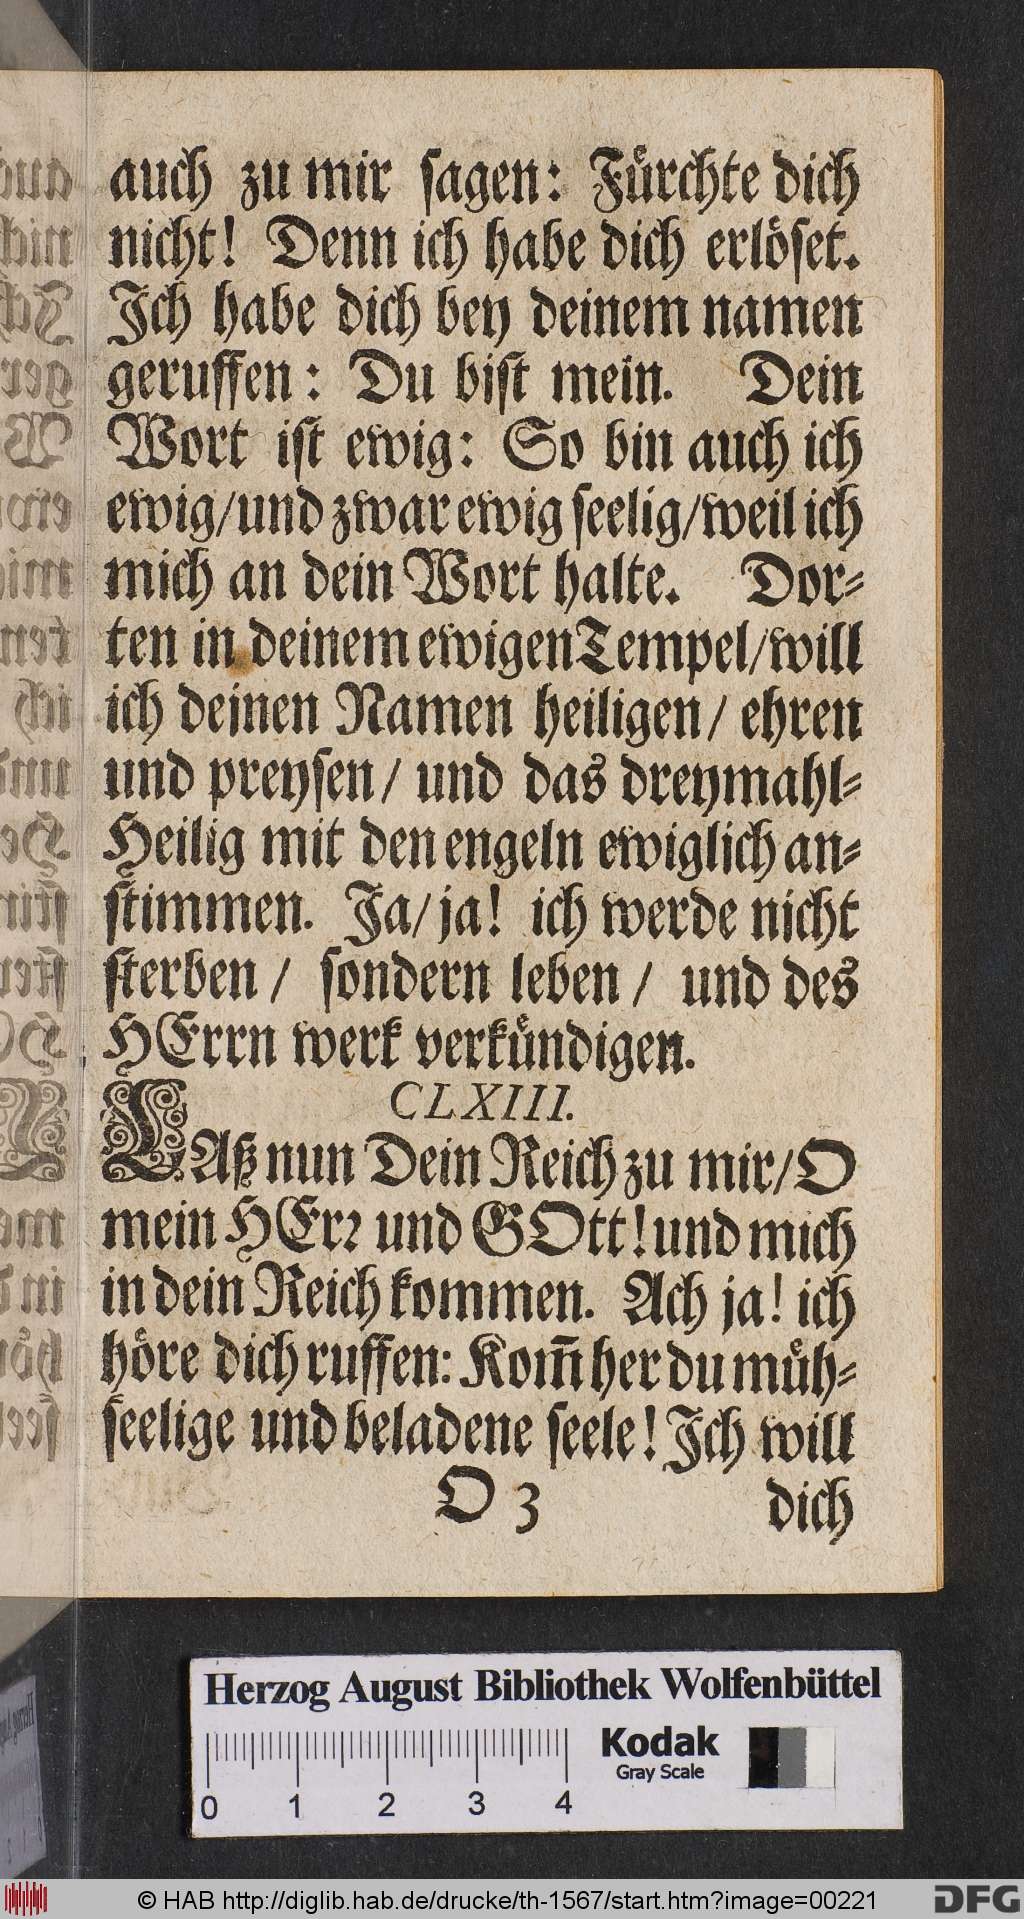 auch zu mir sagen: Fürchte dich
nicht! Denn ich habe dich erlöset.
Ich habe dich bey deinem namen
geruffen: Du bist mein. Dein
Wort ist ewig: So bin auch ich
ewig/und zwar ewig seelig/weil ich
mich an dein Wort halte. Dor-
ten in deinem ewigen Tempel/will
ich deinen Namen heiligen/ ehren
und preysen/ und das dreymahl-
Heilig mit den engeln ewiglich an-
stimmen. Ja/ ja! ich werde nicht
sterben/ sondern leben/ und des
HErrn werk verkündigen.
CLXIII.
LAß nun Dein Reich zu mir/O
mein HErꝛ und GOtt! und mich
in dein Reich kommen. Ach ja! ich
höre dich ruffen: Kom̅ her du müh-
seelige und beladene seele! Ich will
O 3 dich
Herzog August Bibliothek Wolfenbüttel
Kodak
Gray Scale
0 1 2 3 4
© HAB http://diglib.hab.de/drucke/th-1567/start.htm?image=00221
DFG